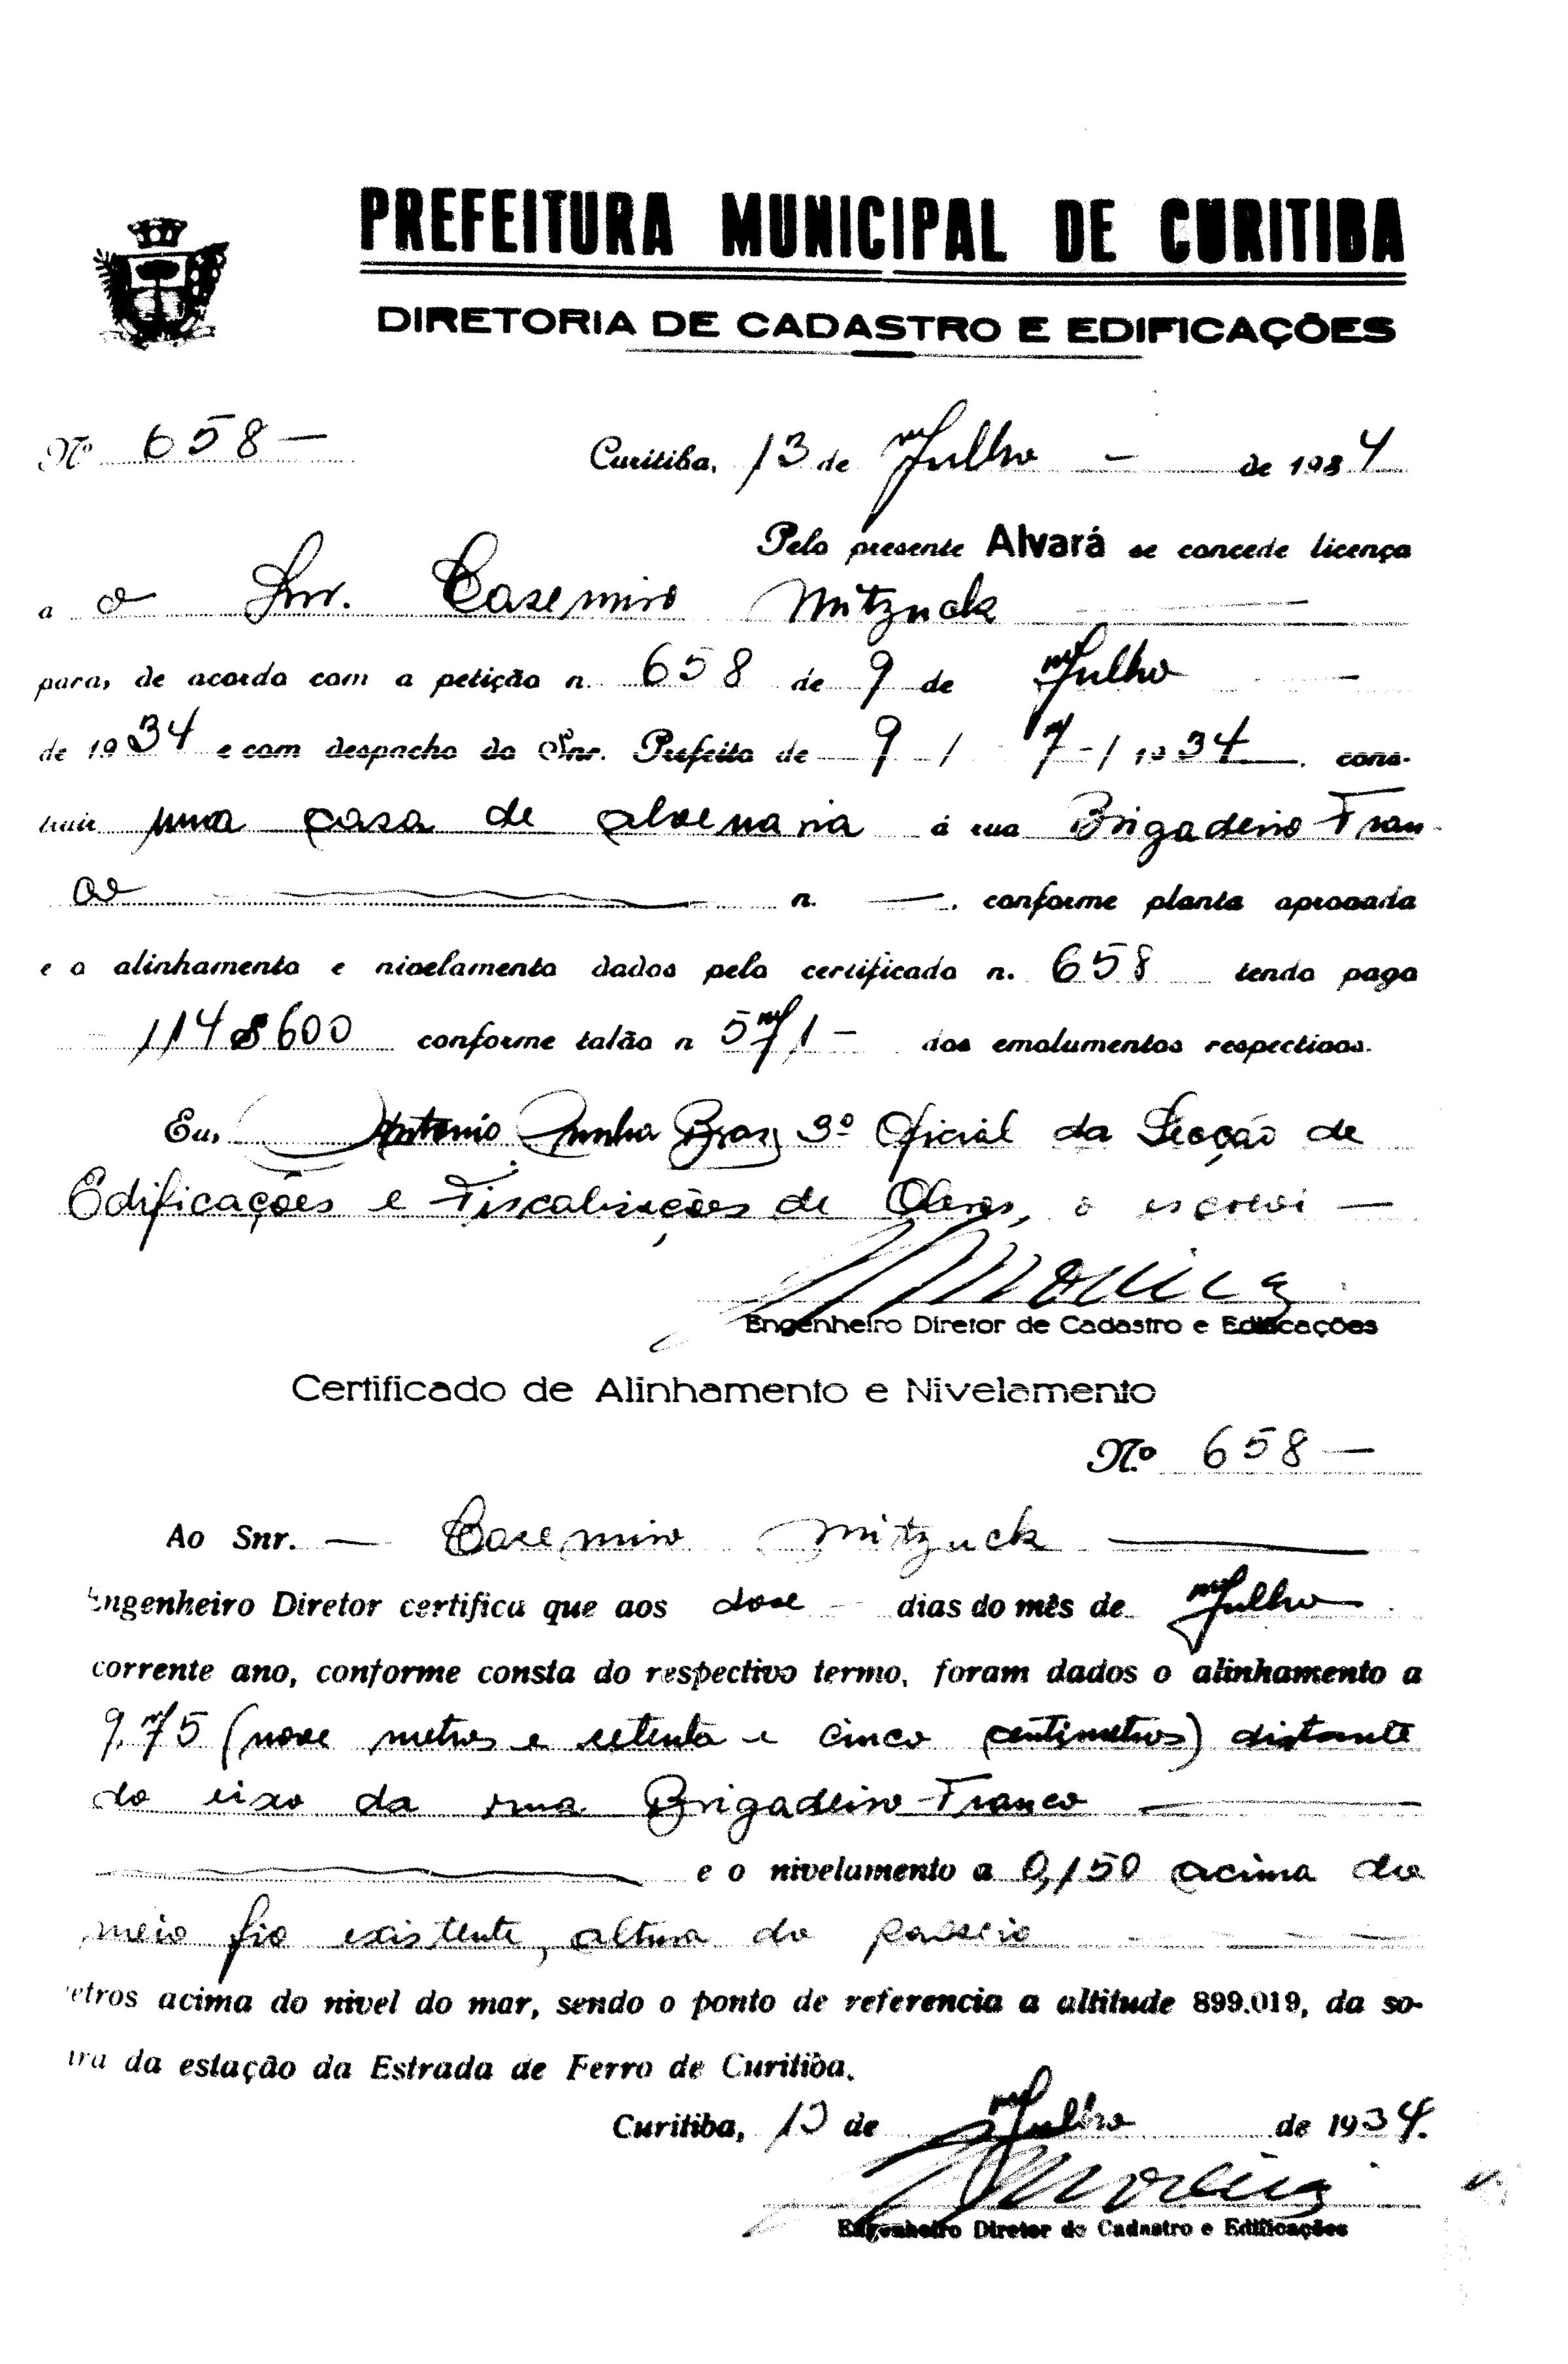 PREFEITURA MUNICIPAL DE CURITIBA
DIRETORIA DE CADASTRO E EDIFICAÇÕES
Nº 658 —
Curitiba, 13 de Julho — de 1934
Pelo presente Alvará se concede licença
a o Snr. Casemiro Mitzuck
para, de acordo com a petição n. 658 de 9 de Julho —
de 1934 e com despacho do Snr. Prefeito de 9 / 7 / 1934. cons-
truir uma casa de alvenaria á rua Brigadeiro Fran-
co n. —. conforme planta aprovada
e o alinhamento e nivelamento dados pelo certificado n. 658 tendo pago
114$600 conforme talão n 571 — dos emolumentos respectivos.
Eu, Antonio Cunha Braz 3º Oficial da Secção de
Edificações e Fiscalizações de Obras, o escrevi —
Engenheiro Diretor de Cadastro e Edificações
Certificado de Alinhamento e Nivelamento
N.º 658 —
Ao Snr. — Casemiro Mitzuck —
Engenheiro Diretor certifica que aos dose dias do mês de Julho
corrente ano, conforme consta do respectivo termo, foram dados o alinhamento a
9,75 (nove metros e setenta e cinco centimetros) distante
do eixo da rua Brigadeiro Franco —
e o nivelamento a 0,150 acima do
meio fio existente, altura do passeio
etros acima do nivel do mar, sendo o ponto de referencia a altitude 899.019, da so-
ira da estação da Estrada de Ferro de Curitiba.
Curitiba, 13 de Julho de 1934.
Engenheiro Diretor de Cadastro e Edificações